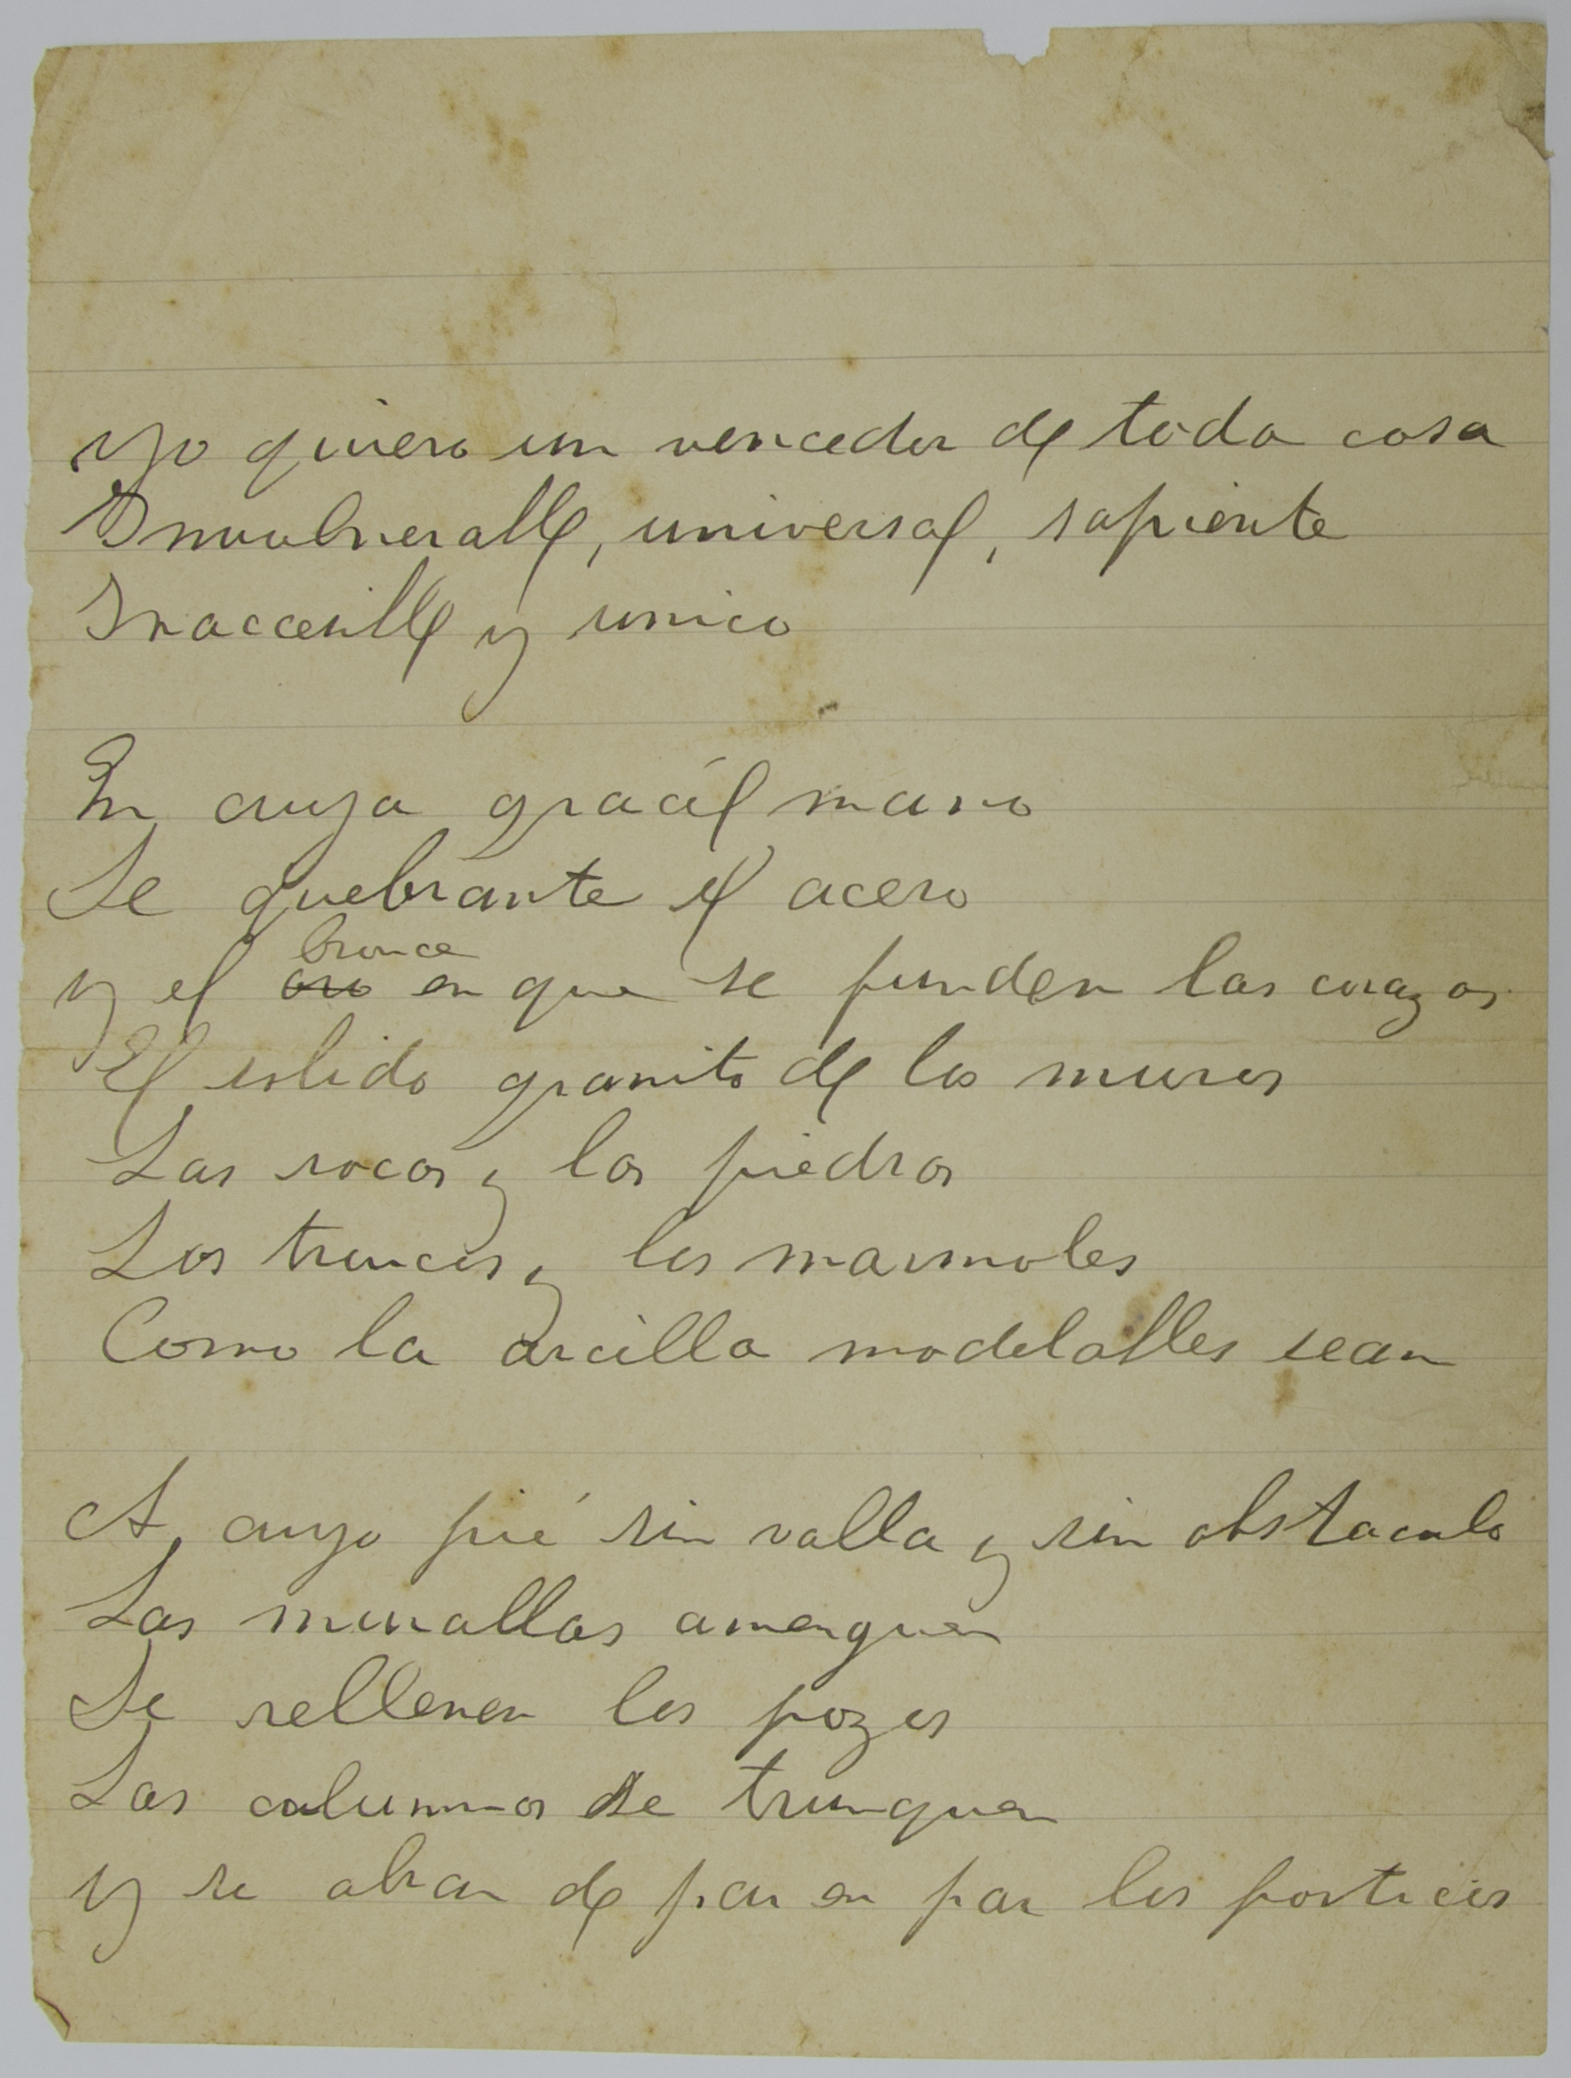 Yo quiero un vencedor de toda cosa
Invulnerable, universal, sapiente
Inaccesible y unico
En cuya gracíl mano
Se quebrante el acero
bronce
y el oro en que se funden las corazas
El solido granito de los muros
Las rocas y las piedras
Los troncos y los marmoles
Como la arcilla modelables sean
A cuyo pié sin valla y sin obstaculo
Las murallas amenguen
Se rellenen los pozos
Las columnas se trunquen
y se abran de par en par los porticos